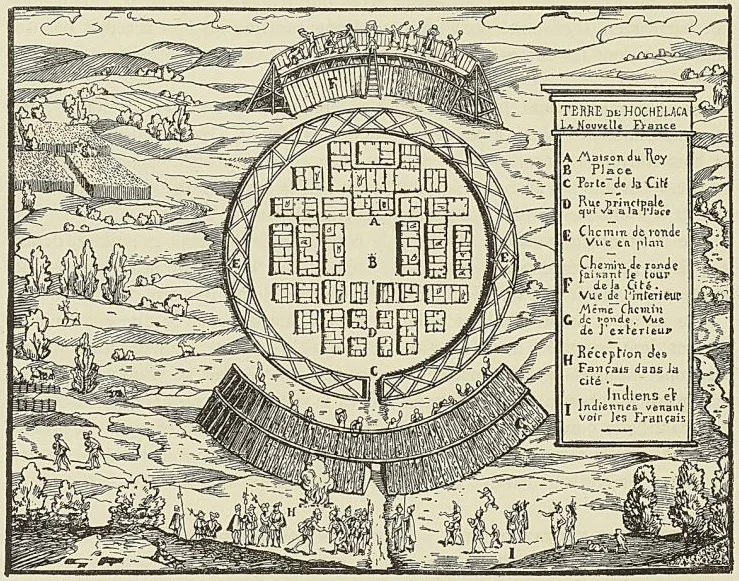 TERRE DE HOCHELAGA
La Nouvelle France
A Maison du Roy
B Place
C Porte de la Cité
D Rue principale
qui va a la Place
E Chemin de ronde
Vue en plan
F Chemin de ronde
faisant le tour
de la Cité.
Vue de l'interieur
G Même Chemin
de ronde. Vue
de l'exterieur
H Réception des
Fançais dans la
cité.
I Indiens et
Indiennes venant
voir les Français
F
A
E
B
E
D
C
G
H
I